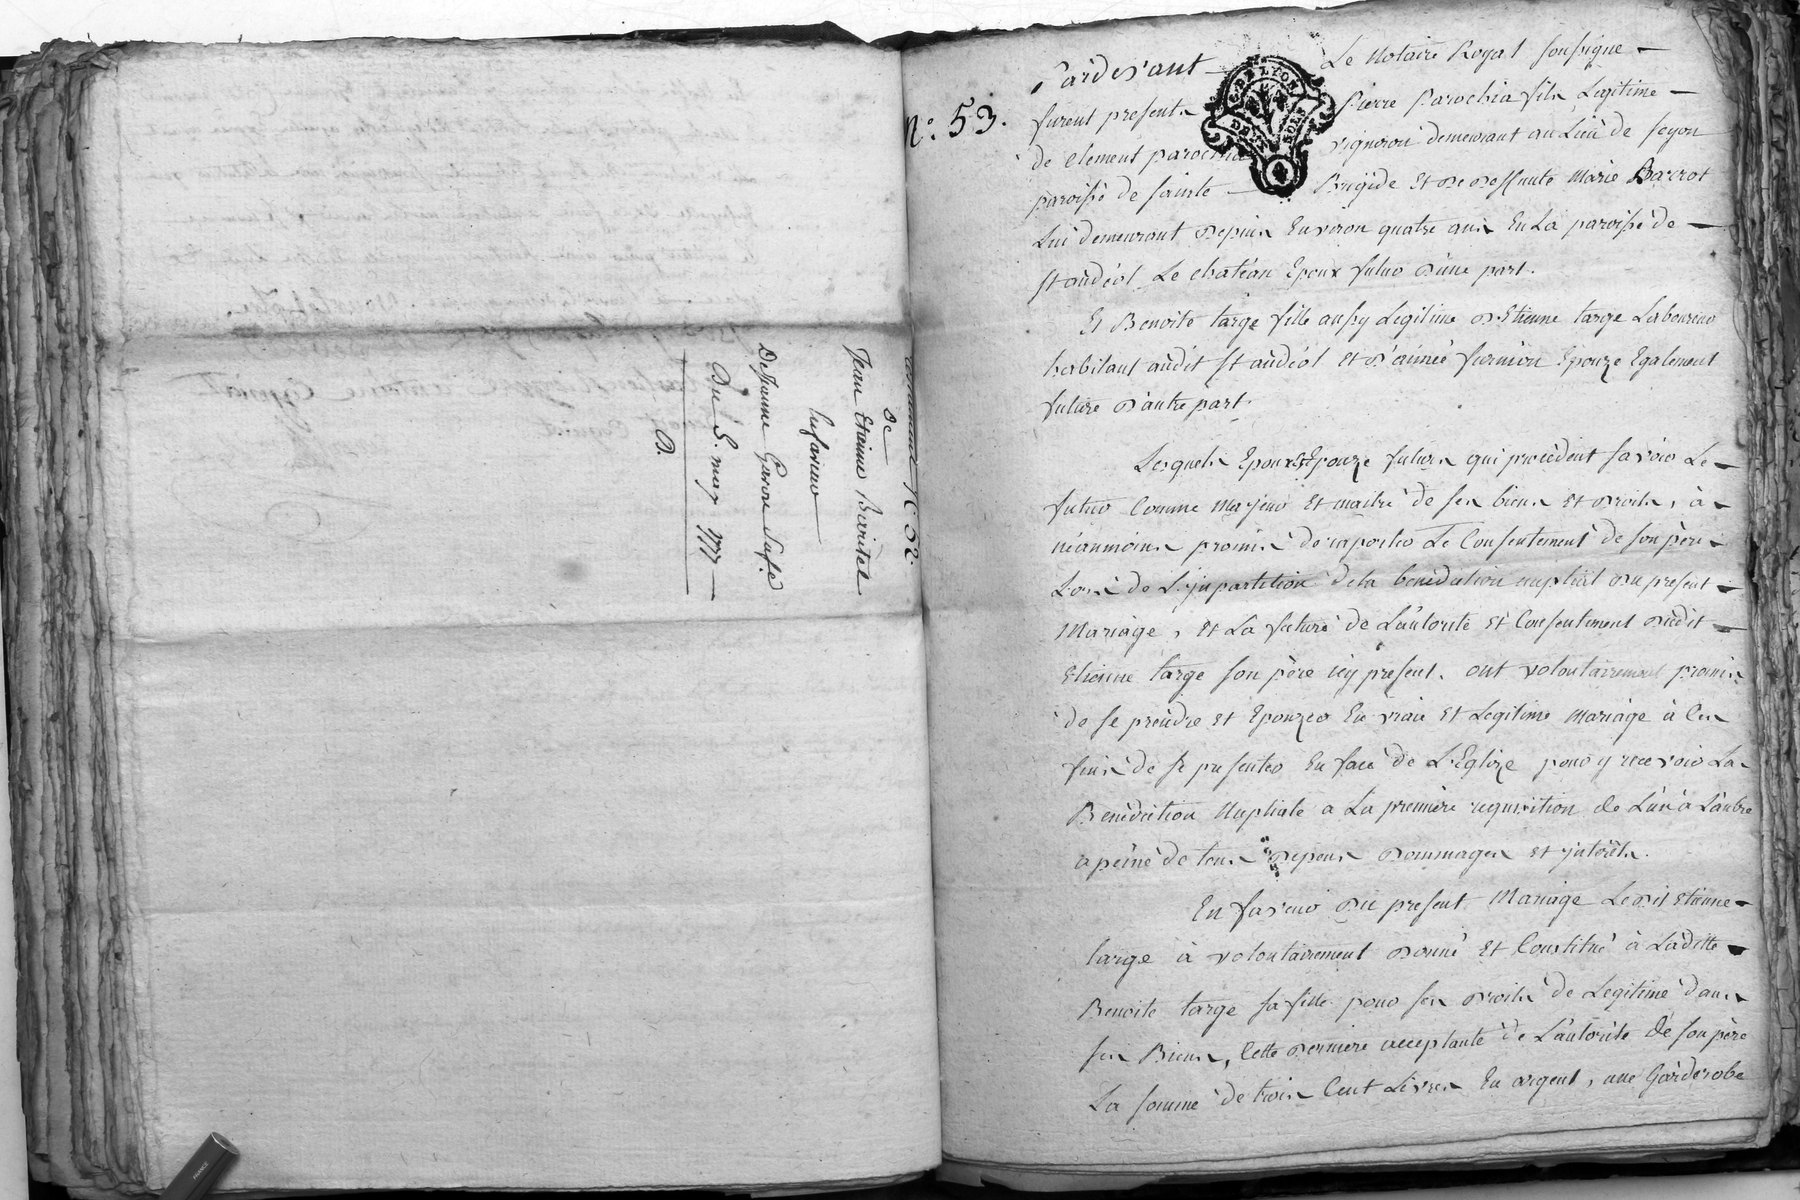 De
Jean Etienne Beritel
Du 5. may 1777
D.
N.° 53.
Pardevant Le Notaire Royal soussigné
furent presents Pierre Parochia fils Legitime
de Clement parochia vigneron demeurant au Lieu de Seyon
paroisse de sainte Brigide Et De Deffunte Marie Barrot
Lui demeurant Depuis Environ quatre ans En La paroisse de
st andéol Le chatéau Epoux futur D'une part.
Et Benoite targe fille aussy Legitime D'Etienne targe Laboureur
habitant audit st andéol Et D'aimée Epouze Egalement
future D'autre part.
Lesquels Epoux Et Epouze futurs qui procédent savoir Le
futur Comme Majeur Et maitre de ses biens Et Droits, à
néanmoins promis de raporter Le Consentement de son père
Lors de L'jnpartition de la benediction nuptial Du present
Mariage, Et La future de L'autorité Et Consentement Dudit
Etienne targe son père icy present. ont volontairement promis
de se prendre Et Epouzer En vraie Et Legitime Mariage à Ces
fins de se presenter En face de L'Eglize pour y recevoir La
Benediction Nuptiale a La première requisition de L'un à L'autre
a peine de tous Depens Dommages Et jnterets.
En faveur Du present Mariage Ledit Etienne
targe à volontairement Donné Et Constitué à Laditte
Benoite targe sa fille pour ses Droits de Legitime dans
ses Biens, Cette Derniere acceptante de L'autorité de son père
La somme de trois Cent Livres En argent, une Garderobe